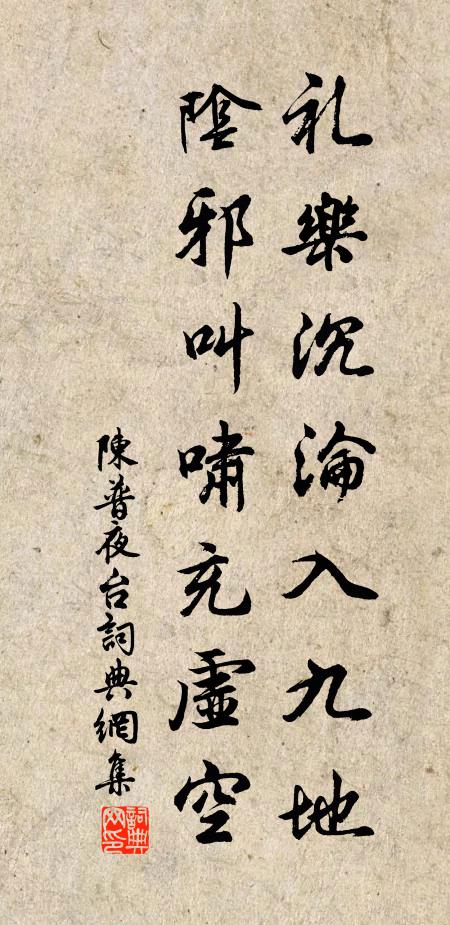 礼樂沉淪入九地
陰邪叫嘯充虛空
陳普夜台詞典網集
詞典網印